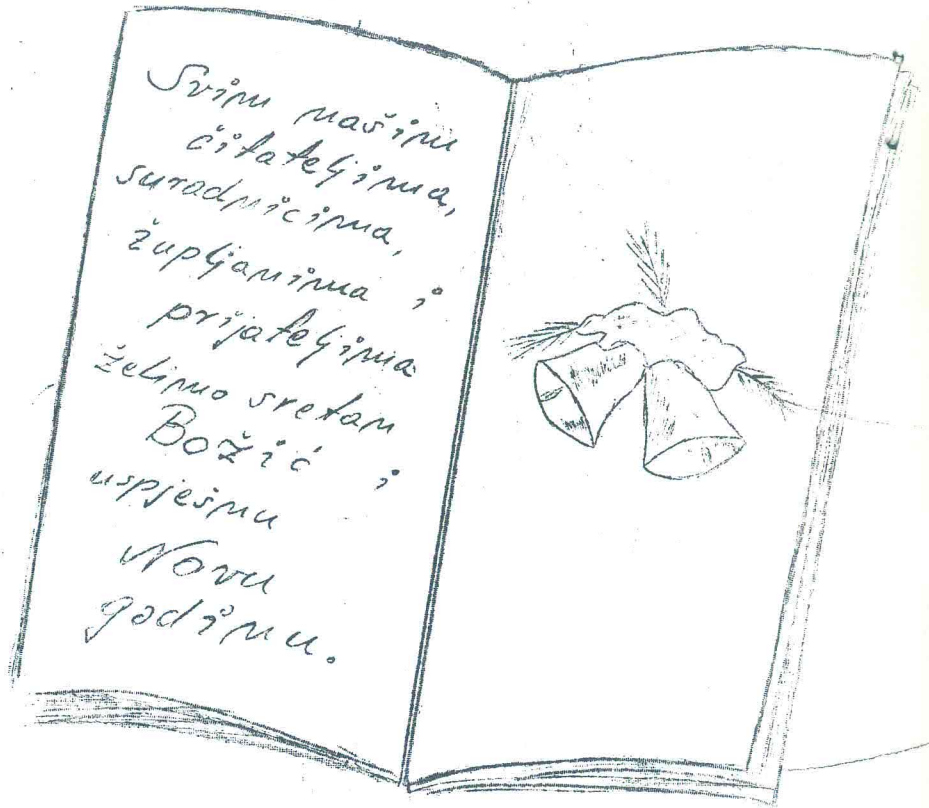 Svim našim
čitateljima,
suradnicima,
župljanima i
prijateljima
želimo sretan
Božić i
uspješnu
Novu
godinu.